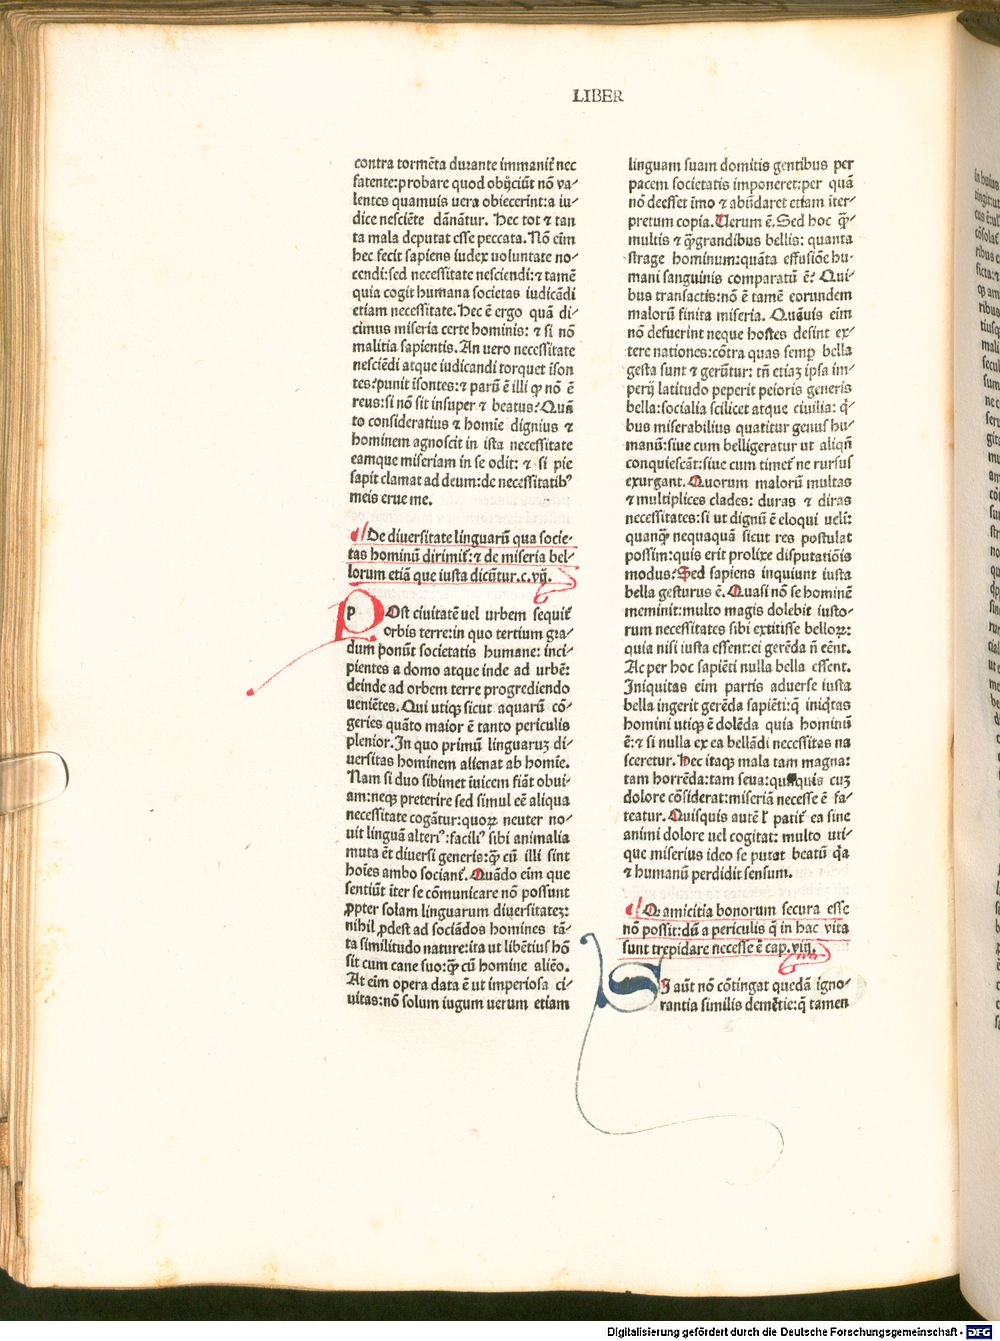 LIBER
contra tormēta durante immanit̄ nec
fatente:probare quod obijciūt nō va⸗
lentes quamuis uera obiecerint:a iu⸗
dice nesciēte dānātur. Hec tot ⁊ tan
ta mala deputat esse peccata. Nō eīm
hec fecit sapiens iudex uoluntate no⸗
cendi:sed necessitate nesciendi:⁊ tamē
quia cogit humana societas iudicādi
etiam necessitate. Hec ē ergo quā di⸗
cimus miseria certe hominis: ⁊ si nō
malitia sapientis. An uero necessitate
nesciēdi atque iudicandi torquet īson
tes:punit īsontes:⁊ parū ē illi ꝙ nō ē
reus:si nō sit insuper ⁊ beatus? Quā
to consideratius ⁊ homīe dignius ⁊
hominem agnoscit in ista necessitate
eamque miseriam in se odit: ⁊ si pie
sapit clamat ad deum:de necessitatibꝰ
meis erue me.
De diuersitate linguarū qua socie⸗
tas hominū dirimit̄:⁊ de miseria bel⸗
lorum etiā que iusta dicūtur.c.vij.
POst ciuitatē uel urbem sequit̄
orbis terre:in quo tertium gra⸗
dum ponūt societatis humane: inci⸗
pientes a domo atque inde ad urbē:
deinde ad orbem terre progrediendo
ueniētes. Qui utiqꝫ sicut aquarū cō⸗
geries quāto maior ē tanto periculis
plenior. In quo primū linguaruꝫ di⸗
uersitas hominem alienat ab homīe.
Nam si duo sibimet īuicem fiāt obui⸗
am:neqꝫ preterire sed simul eē aliqua
necessitate cogātur:quoꝝ neuter no⸗
uit linguā alteriꝰ:faciliꝰ sibi animalia
muta ēt diuersi generis:ꝙ̄ cū illi sint
hoīes ambo sociant̄. Quādo eīm que
sentiūt īter se cōmunicare nō possunt
ꝓpter solam linguarum diuersitateꝫ:
nihil ꝓdest ad sociādos homines tā⸗
ta similitudo nature:ita ut libētius hō
sit cum cane suo:ꝙ̄ cū homine aliēo.
At eīm opera data ē ut imperiosa ci⸗
uitas:nō solum iugum uerum etiam
linguam suam domitis gentibus per
pacem societatis imponeret:per quā
nō deesset īmo ⁊ abūdaret etiam īter⸗
pretum copia. Uerum ē. Sed hoc ꝙ̄
multis ⁊ ꝙ̄grandibus bellis: quanta
strage hominum:quāta effusiōe hu⸗
mani sanguinis comparatū ē? Qui⸗
bus transactis:nō ē tamē eorundem
malorū finita miseria. Quāuis eīm
nō defuerint neque hostes desint ex⸗
tere nationes:cōtra quas semꝑ bella
gesta sunt ⁊ gerūtur: tn̄ etiaꝫ ipsa im⸗
perij latitudo peperit peioris generis
bella:socialia scilicet atque ciuilia: q̄⸗
bus miserabilius quatitur genus hu⸗
manū:siue cum belligeratur ut aliqn̄
conquiescāt:siue cum timet̄ ne rursus
exurgant. Quorum malorū multas
⁊ multiplices clades: duras ⁊ diras
necessitates:si ut dignū ē eloqui uelī:
quanꝙ̄ nequaquā sicut res postulat
possim:quis erit prolixe disputatiōis
modus? Sed sapiens inquiunt iusta
bella gesturus ē. Quasi nō se hominē
meminit:multo magis dolebit iusto⸗
rum necessitates sibi extitisse belloꝝ:
quia nisi iusta essent:ei gerēda n̄ eēnt.
Ac per hoc sapiēti nulla bella essent.
Iniquitas eīm partis aduerse iusta
bella ingerit gerēda sapiēti:q̄ iniq̄tas
homini utiqꝫ ē dolēda quia hominū
ē:⁊ si nulla ex ea bellādi necessitas na
sceretur. Hec itaqꝫ mala tam magna:
tam horrēda:tam seua:quisquis cuꝫ
dolore cōsiderat:miseriā necesse ē fa⸗
teatur. Quisquis autē ł patit̄ ea sine
animi dolore uel cogitat: multo uti⸗
que miserius ideo se putat beatū q̄a
⁊ humanū perdidit sensum.
Q amicitia bonorum secura esse
nō possit:dū a periculis q̄ in hac vita
sunt trepidare necesse ē cap.viij.
SI aūt nō cōtingat quedā igno⸗
rantia similis demētie:q̄ tamen
Digitalisierung gefördert durch die Deutsche Forschungsgemeinschaft - DFG